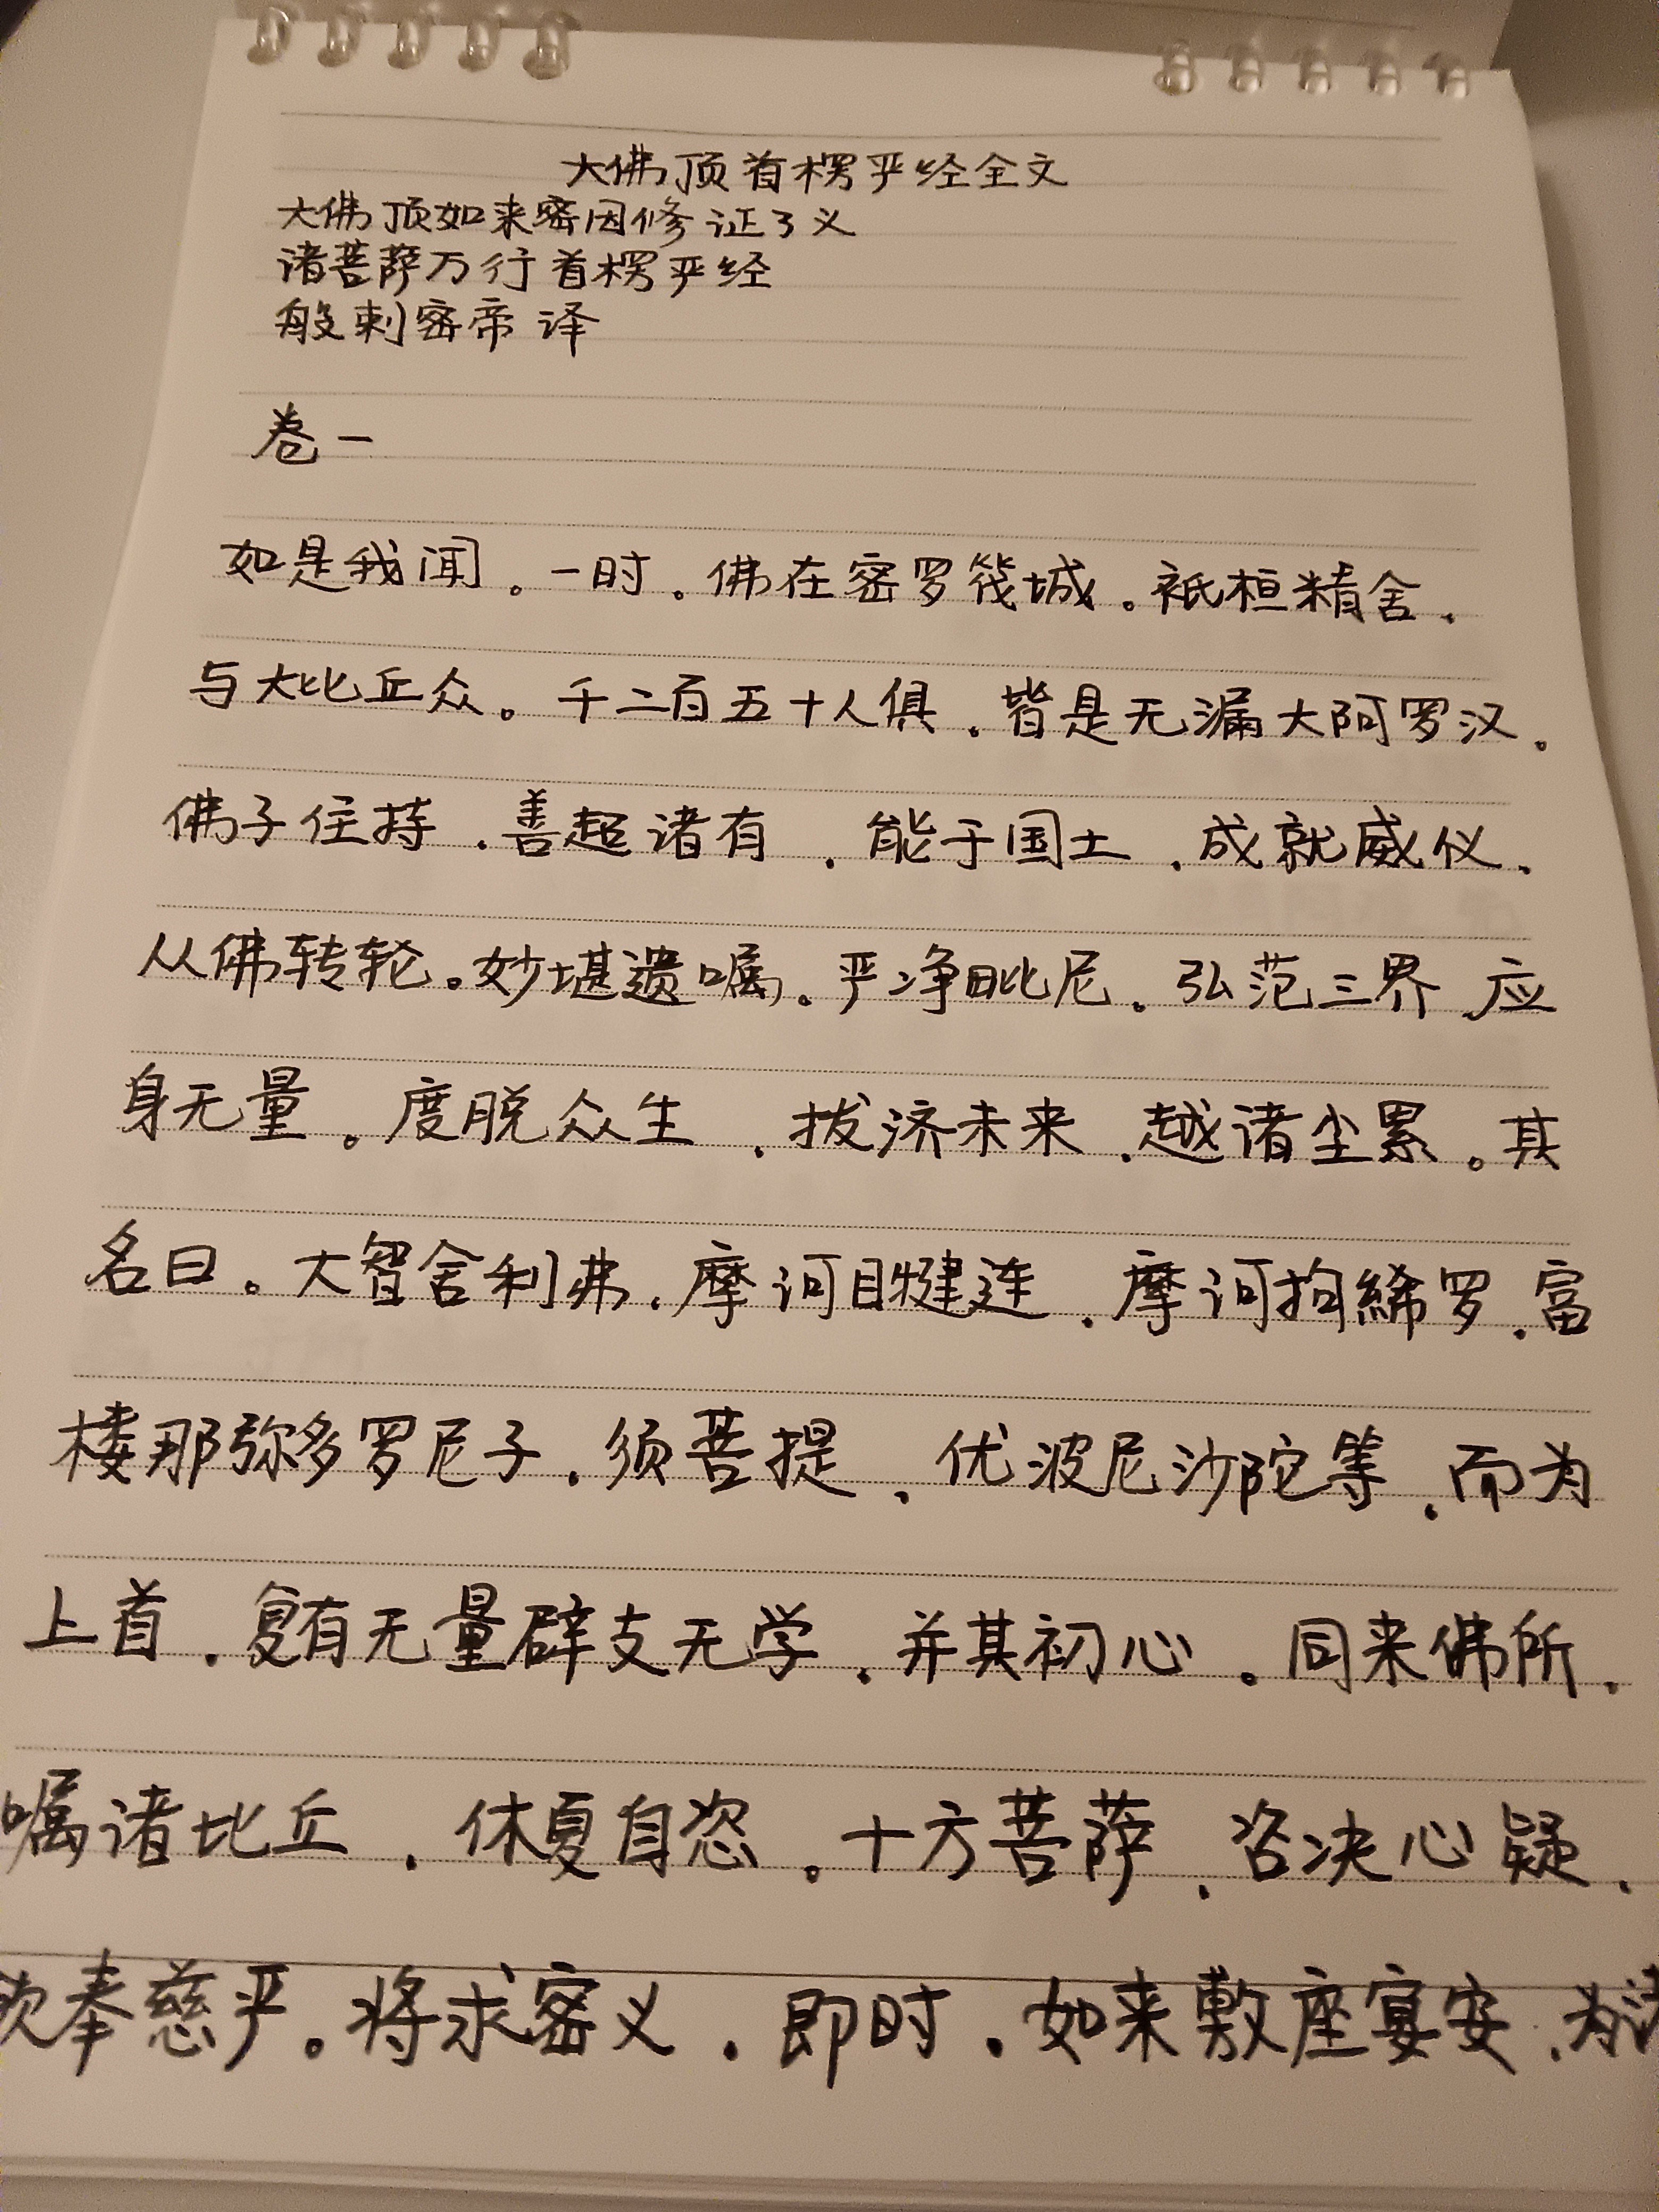 大佛顶首楞严经全文
大佛顶如来密因修证了义
诸菩萨万行首楞严经
般剌密帝 译
卷一
如是我闻。一时。佛在室罗筏城。祇桓精舍。
与大比丘众。千二百五十人俱。皆是无漏大阿罗汉。
佛子住持。善超诸有。能于国土。成就威仪。
从佛转轮。妙堪遗嘱。严净毗尼。弘范三界。应
身无量。度脱众生。拔济未来。越诸尘累。其
名曰。大智舍利弗。摩诃目犍连。摩诃拘絺罗。富
楼那弥多罗尼子。须菩提。优波尼沙陀等。而为
上首。复有无量辟支无学。并其初心。同来佛所。
嘱诸比丘。休夏自恣。十方菩萨。咨决心疑。
钦奉慈严。将求密义。即时。如来敷座宴安。为诸